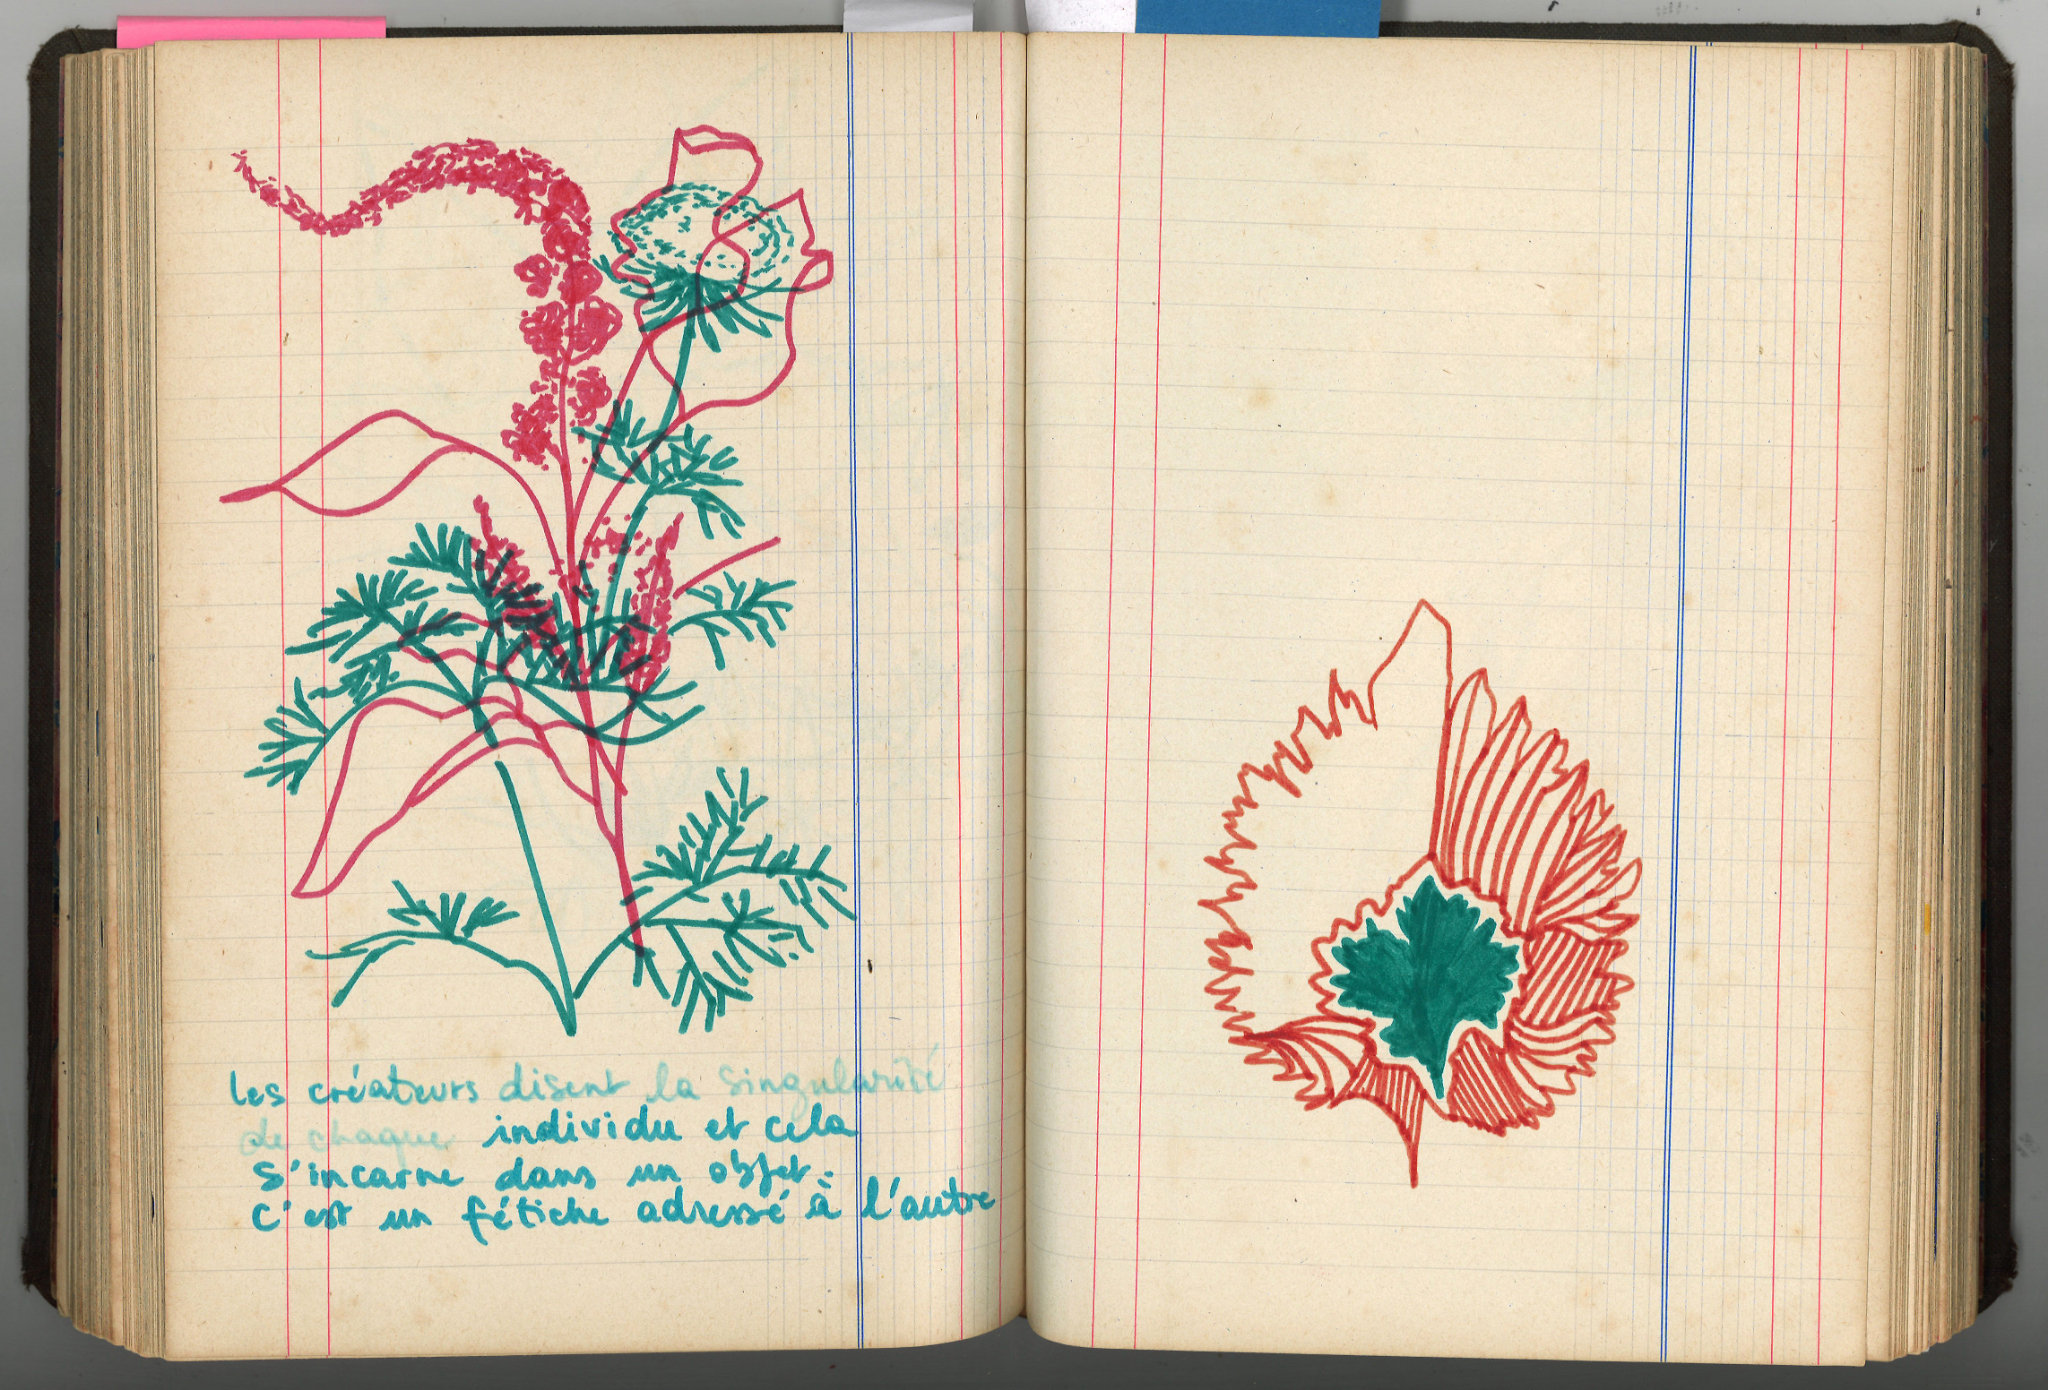 les créateurs disent la singularité
de chaque individu et cela
s'incarne dans un objet :
c'est un fétiche adressé à l'autre